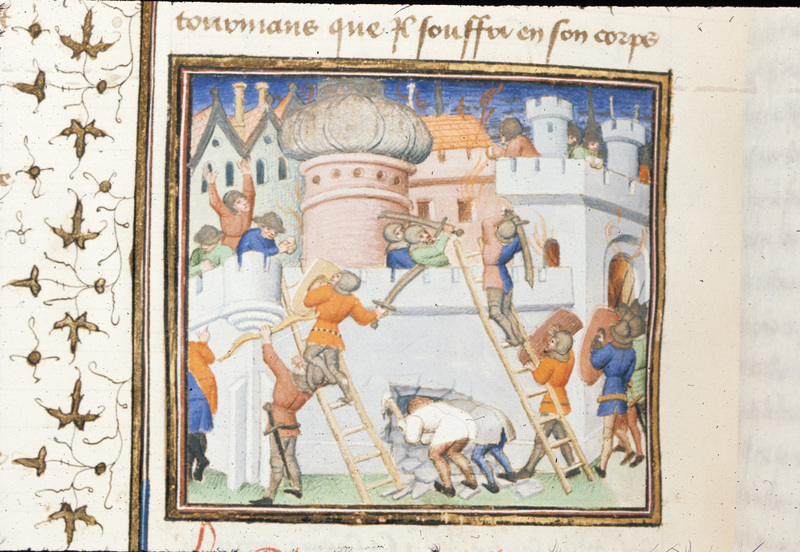 tourmans que Il souffri en son corps